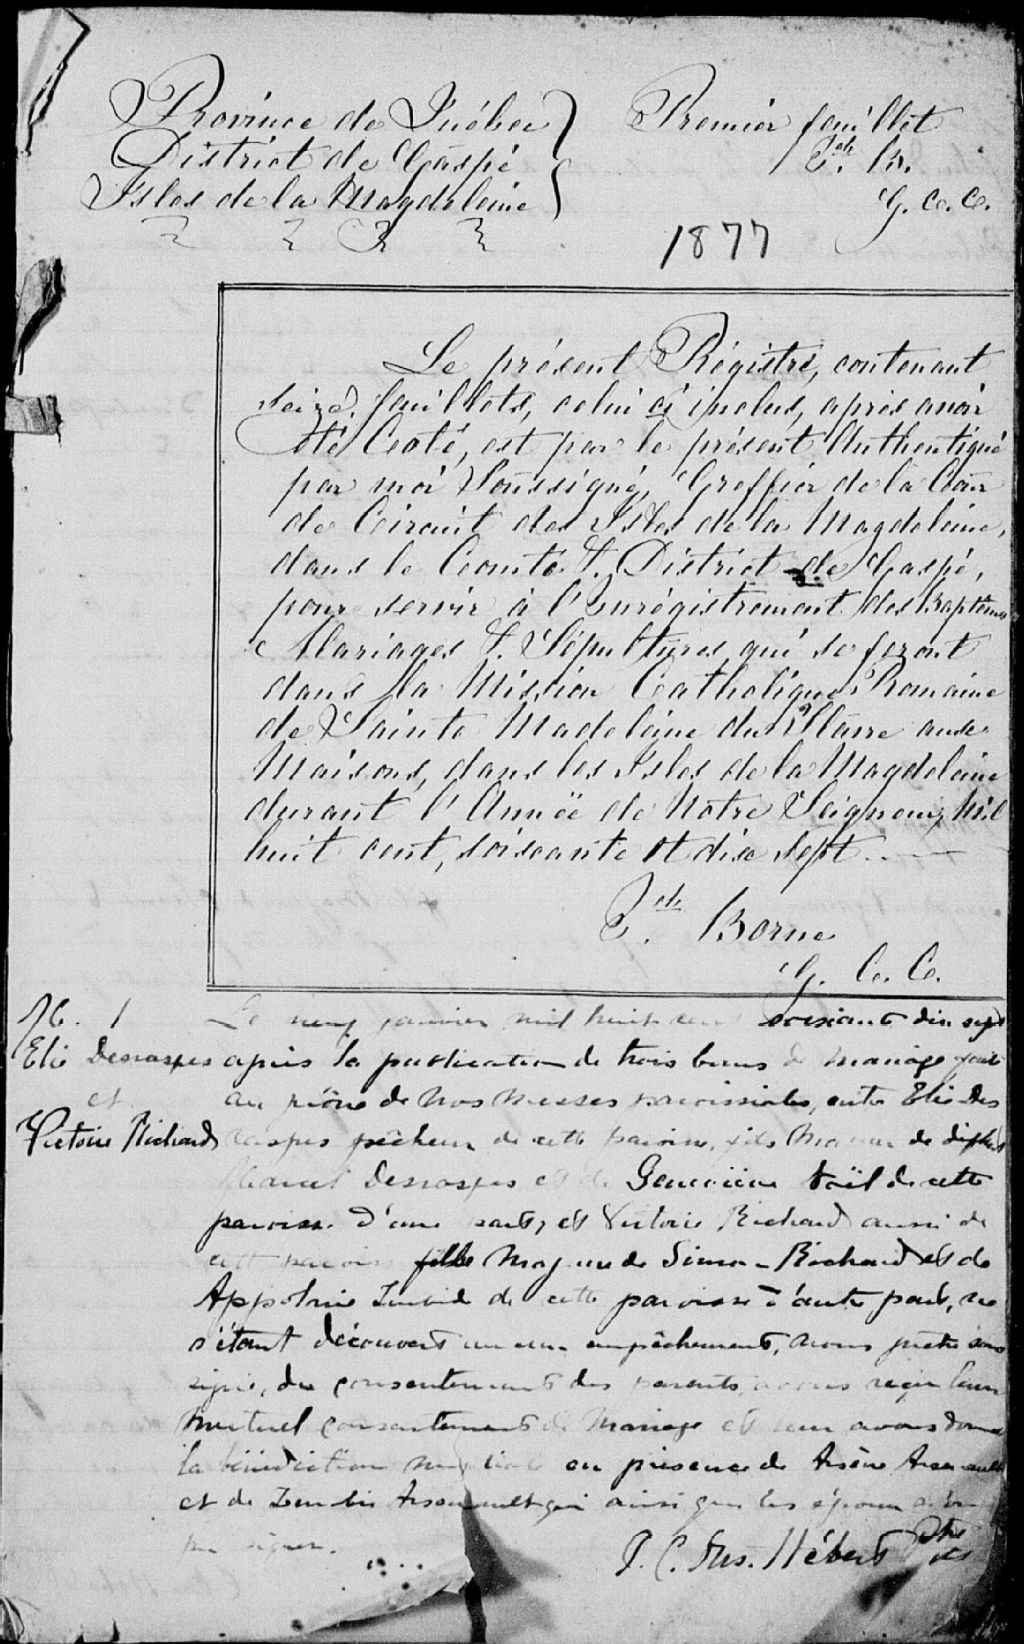 Province de Québec
District de Gaspé
Isles de la Magdeleine
Premier feuillet
J. B.
G. C. C.
1877
Le présent Régistre, contenant
seize feuillets, celui ci inclus, après avoir
été Coté, est par le présent Authentiqué
par moi Soussigné, Greffier de la Cour
de Circuit des Isles de la Magdeleine,
dans le Comté &. District de Gaspé,
pour servir à l'Enrégistrement des Baptêmes
Mariages &. Sépultures, qui se feront
dans la Mission Catholique Romaine
de Sainte Madeleine du Hâvre aux
Maisons, dans les Isles de la Magdeleine
durant l'Année de Notre Seigneur, Mil
huit cent, soixante et dix sept.
Borne
G. C. C.
1
Elie Desraspes
et
Victoire Richard
Le neuf janvier mil huit cent soixante dix sept
après la publication de trois bans de mariage faite
au prône de nos messes paroissiales, entre Elie Des
raspes pêcheur de cette paroisse, fils Majeur de défunt
Desraspes et de Geneviève de cette
paroisse d'une part, et Victoire Richard aussi de
cette paroisse fille Majeure de Simon Richard et de
Appoline de cette paroisse d'autre part, ne
s'étant découvert aucun empêchement, nous prêtre sous
signé, du consentement des parents, avons reçu leur
mutuel consentement de Mariage et leur avons donné
la bénédiction nuptiale en présence de Arsène Arseneault
et de Arseneault qui ainsi que les époux n'ont
pu signer.
J. C. Hébert Ptre